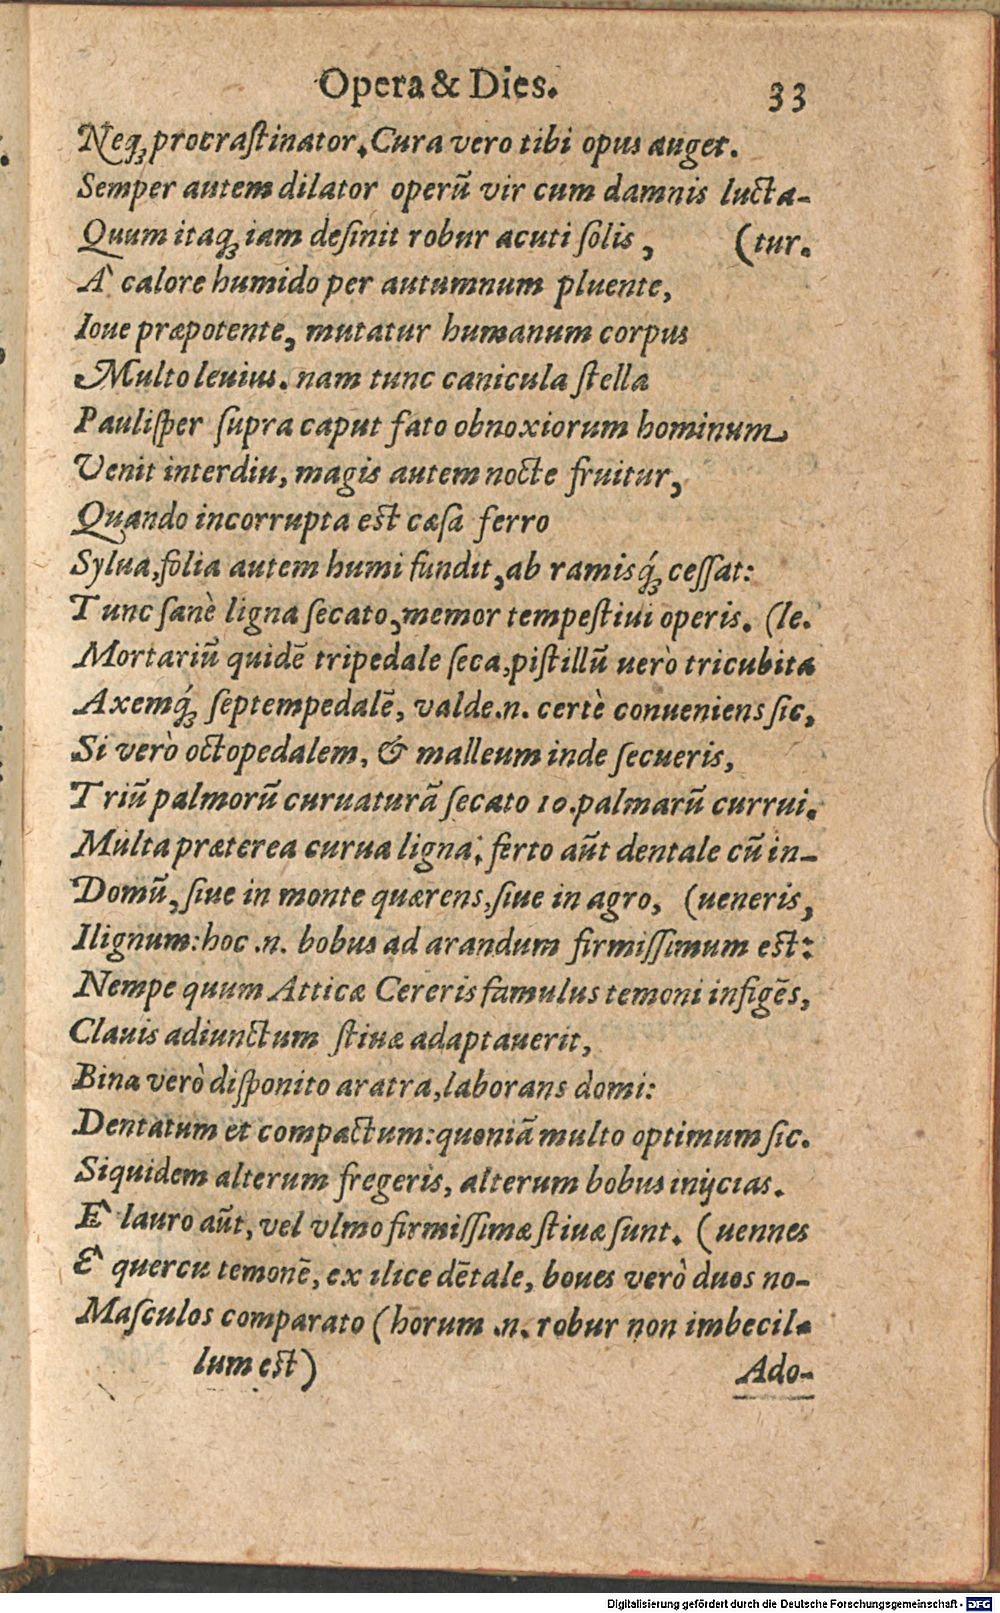 Opera & Dies. 33
Neq́ꝫ procraſtinator. Cura vero tibi opus auget.
Semper autem dilator operū vir cum damnis lucta-
Quum itaqꝫ iam deſinit robur acuti ſolis, (tur.
A` calore humido per autumnum pluente,
Ioue præpotente, mutatur humanum corpus
Multo leuius. nam tunc canicula ſtella
Pauliſper ſupra caput fato obnoxiorum hominum
Venit interdiu, magis autem nocte fruitur,
Quando incorrupta est cæſa ferro
Sylua, folia autem humi fundit, ab ramisq́ꝫ ceſſat:
Tunc ſanè ligna ſecato, memor tempeſtiui operis. (le.
Mortariū quidē tripedale ſeca, piſtillū uerò tricubita
Axemq́ꝫ ſeptempedalē, valde .n. certè conueniens ſic,
Si verò octopedalem, & malleum inde ſecueris,
Triū palmorū curuaturā ſecato 10. palmarū currui.
Multa præterea curua ligna; ferto aūt dentale cū in-
Domū, ſiue in monte quærens, ſiue in agro, (ueneris,
Ilignum: hoc .n. bobus ad arandum firmiſſimum est:
Nempe quum Atticæ Cereris famulus temoni infigēs,
Clauis adiunctum ſtiuæ adaptauerit,
Bina verò diſponito aratra, laborans domi:
Dentatum et compactum: quoniā multo optimum ſic.
Siquidem alterum fregeris, alterum bobus inijcias.
E` lauro aūt, vel vlmo firmiſſimæ ſtiuæ ſunt. (uennes
E` quercu temonē, ex ilice dētale, boues verò duos no-
Maſculos comparato (horum .n. robur non imbecil-
lum est) Ado-
Digitalisierung gefördert durch die Deutsche Forschungsgemeinschaft - DFG